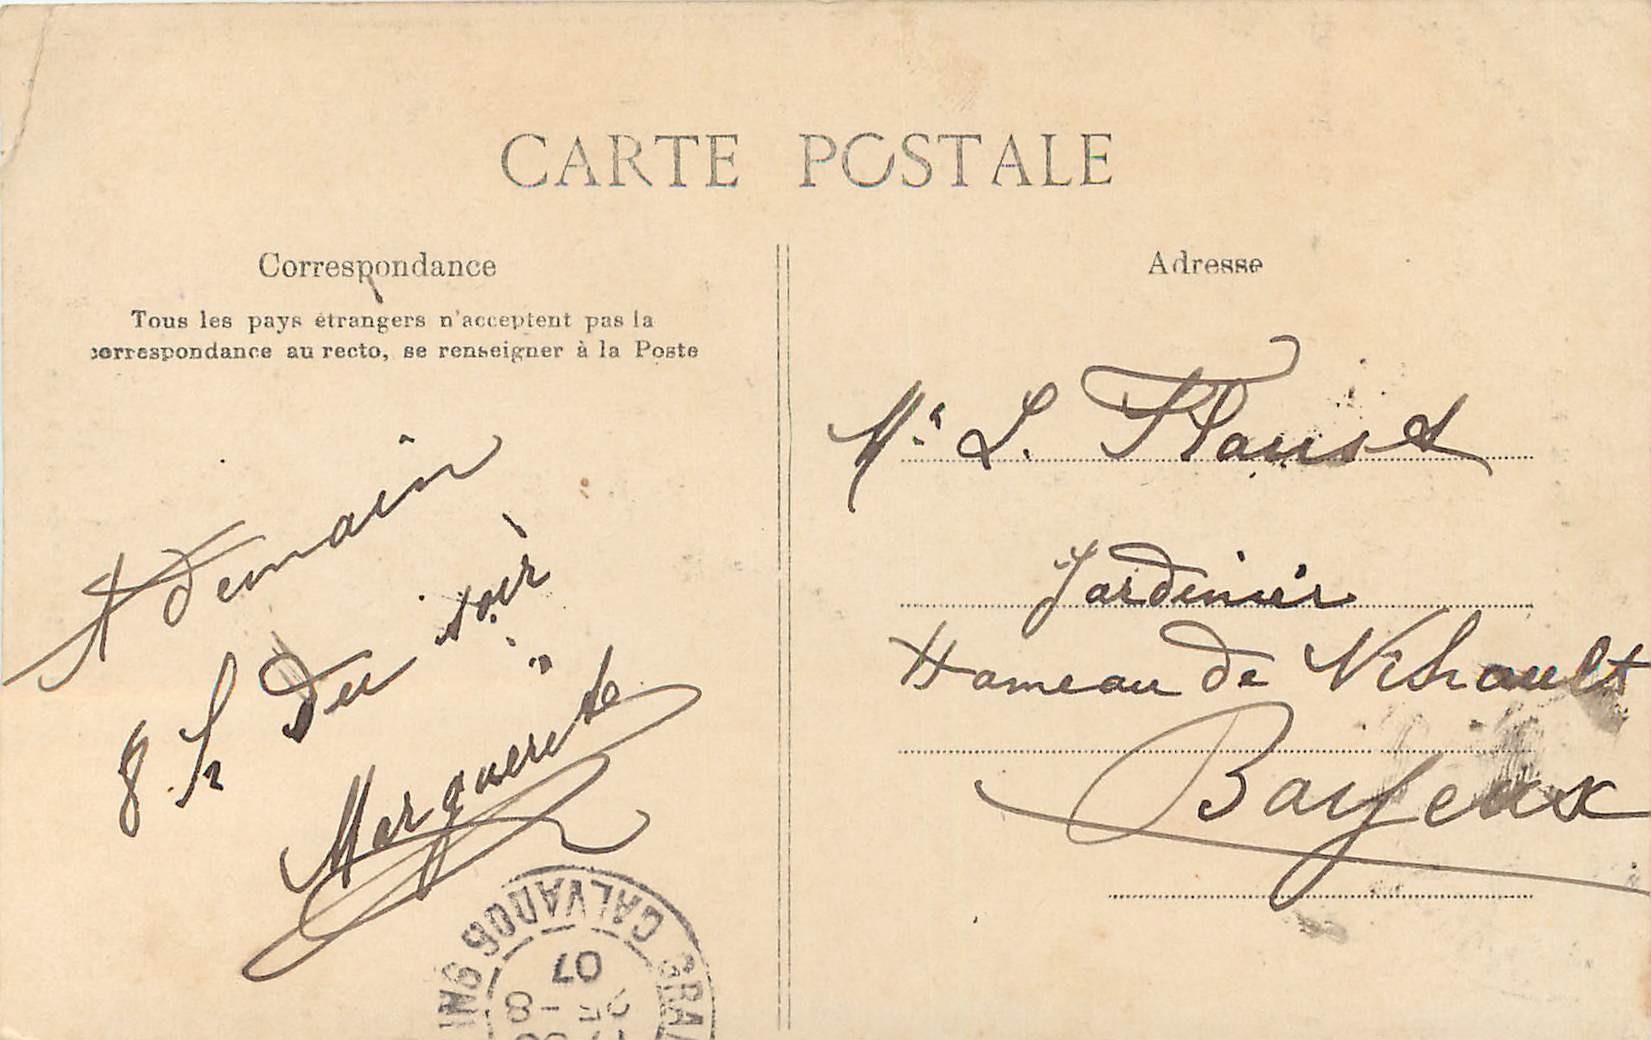 CARTE POSTALE
Correspondance
Tous les pays étrangers n'acceptent pas la
correspondance au recto, se renseigner à la Poste
A demain
8 h du soir
Marguerite
Adresse
Mr L.
Jardinier
Hameau de
Bayeux
CALVADOS
07